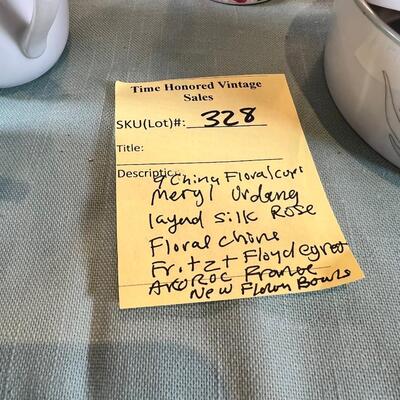 Time Honored Vintage
Sales
SKU(Lot)#: 328
Title:
Description:
4 China Floral cups
Meryl Urdang
layerd Silk Rose
Floral China
Fritz + Floyd egret
ARCOROC France
New Flown Bowls